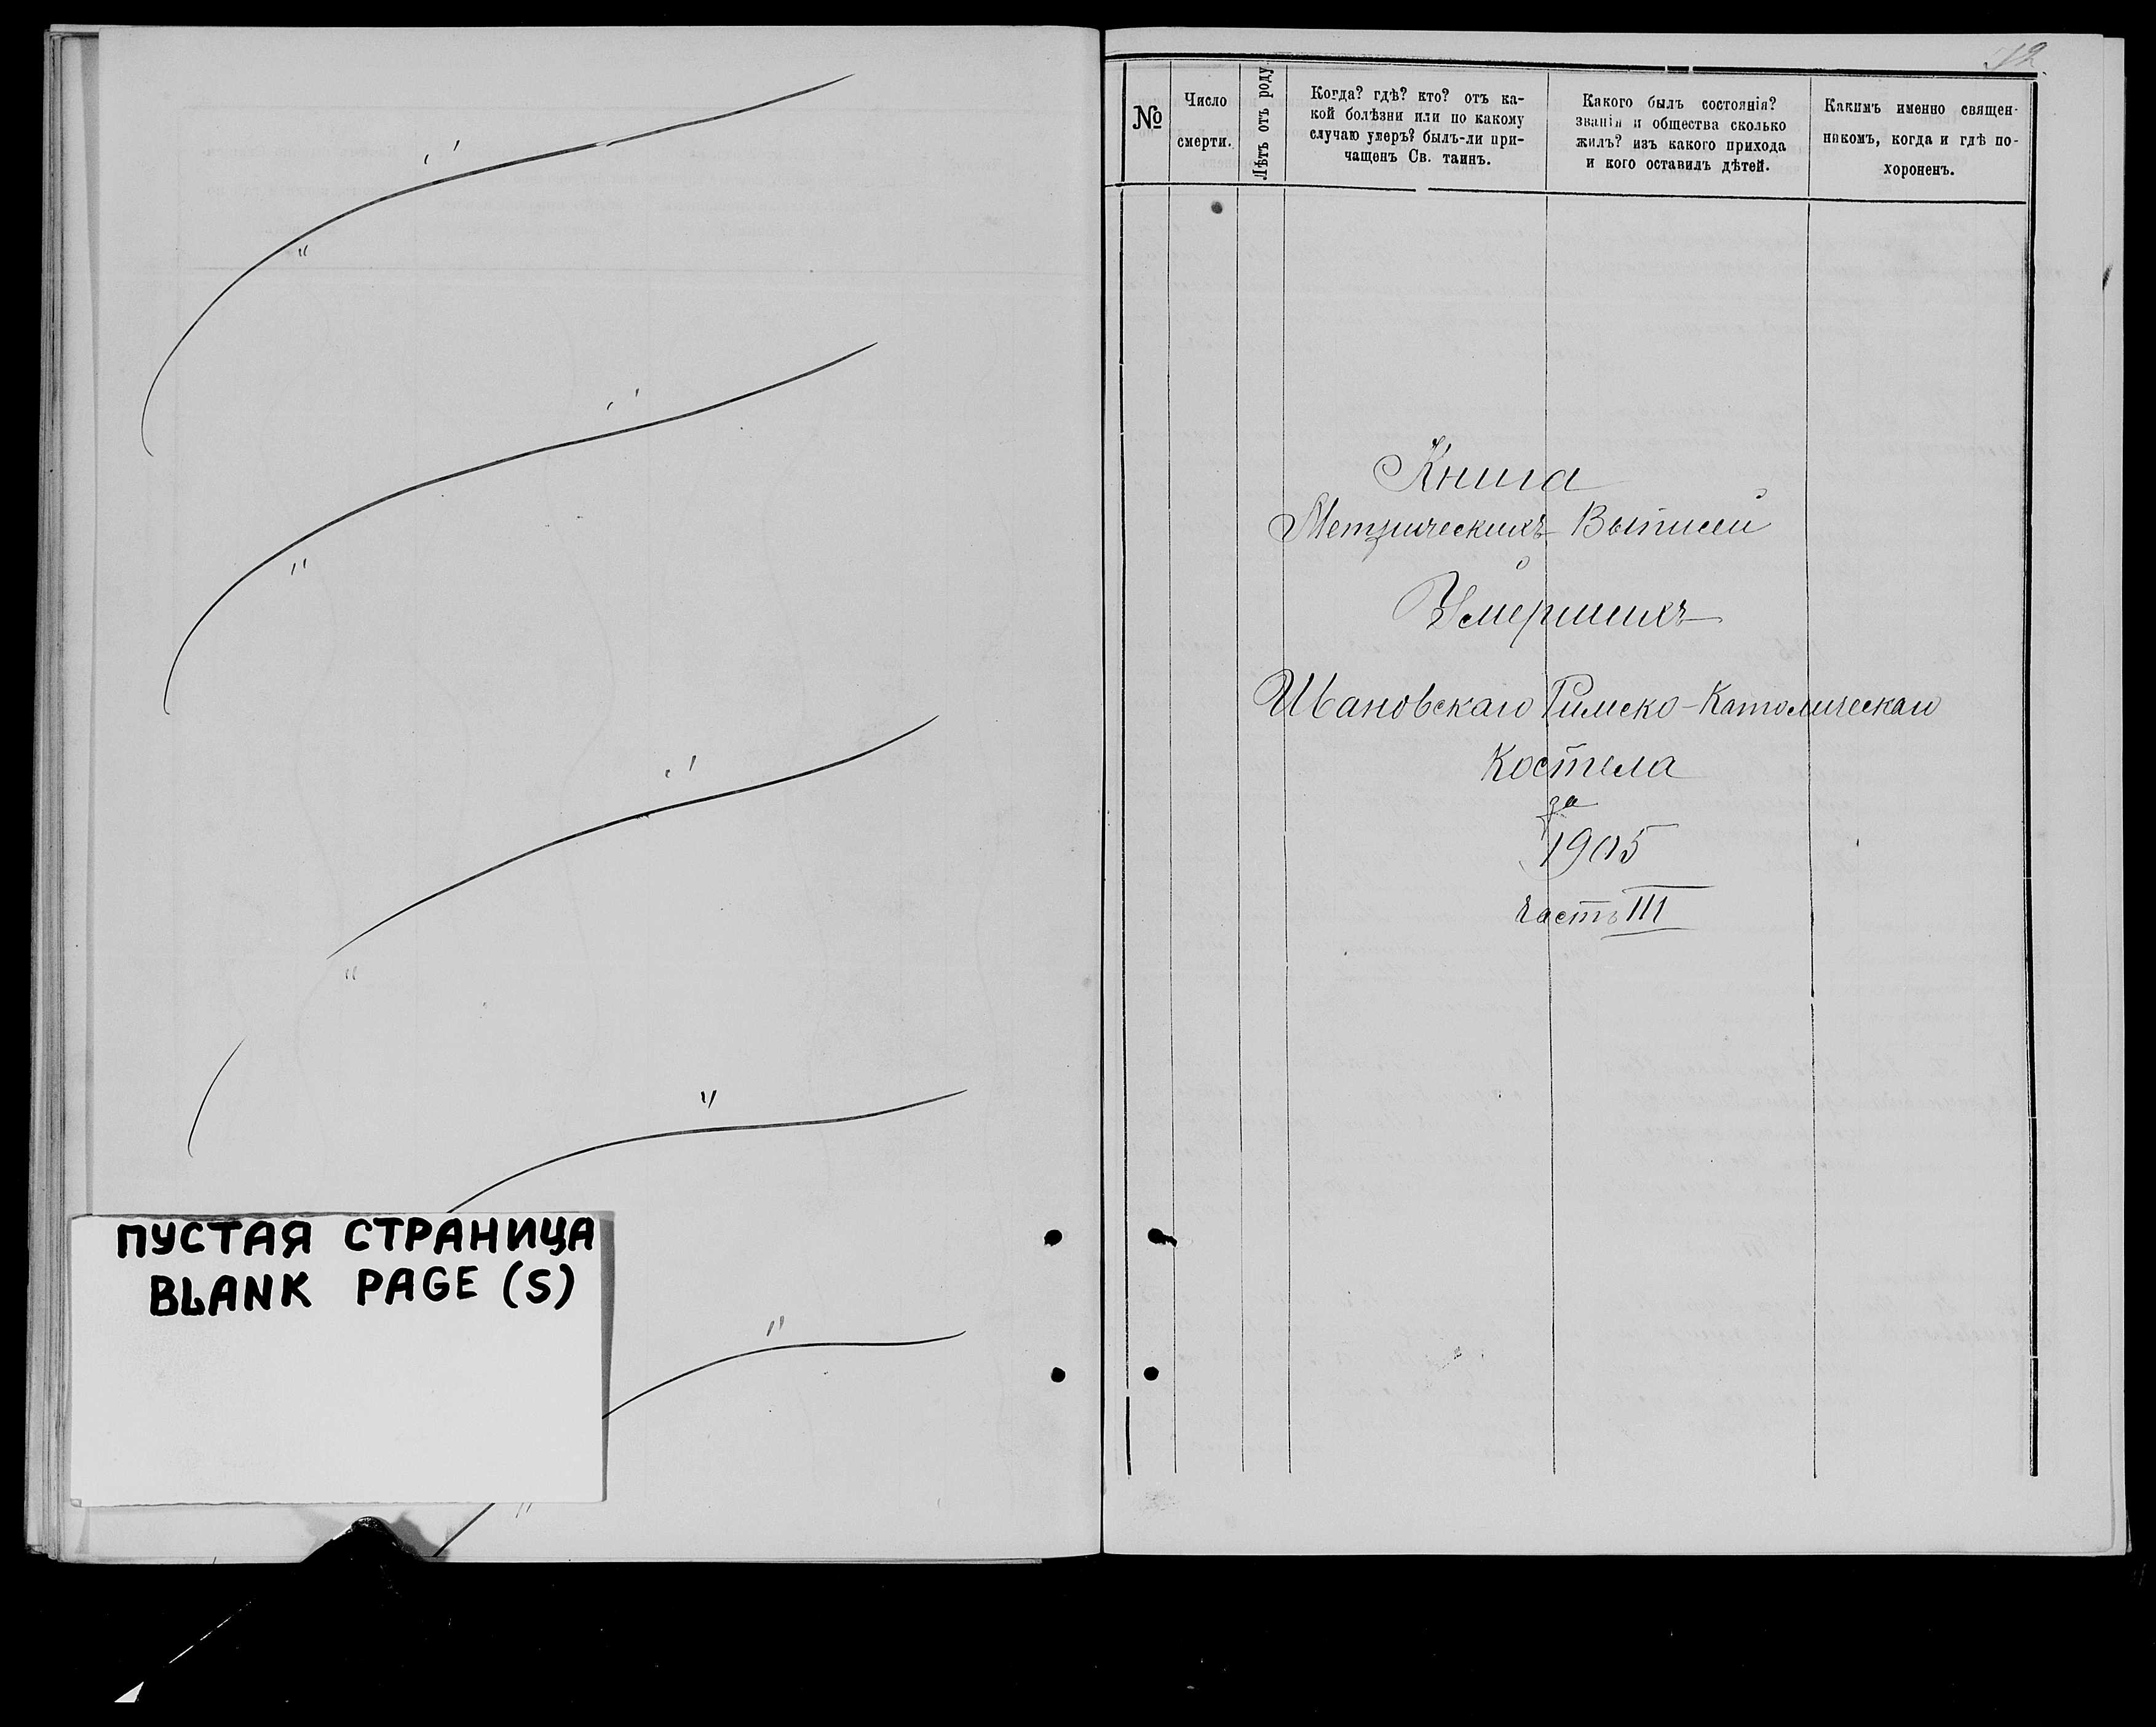 ПУСТАЯ СТРАНИЦА
BLANK PAGE (S)
№
Число
смерти.
Лѣтъ отъ роду
Когда? гдѣ? кто? отъ ка-
кой болѣзни или по какому
случаю умеръ? былъ-ли при-
чащенъ Св. таинъ.
Какого былъ состоянія?
званія и общества сколько
жилъ? изъ какого прихода
и кого оставилъ дѣтей.
Какимъ именно священ-
никомъ, когда и гдѣ по-
хороненъ.
Книга
Метрическихъ Выписей
Умершихъ
Ивановскаго Римско-Католическаго
Костела
за
1905
Часть III